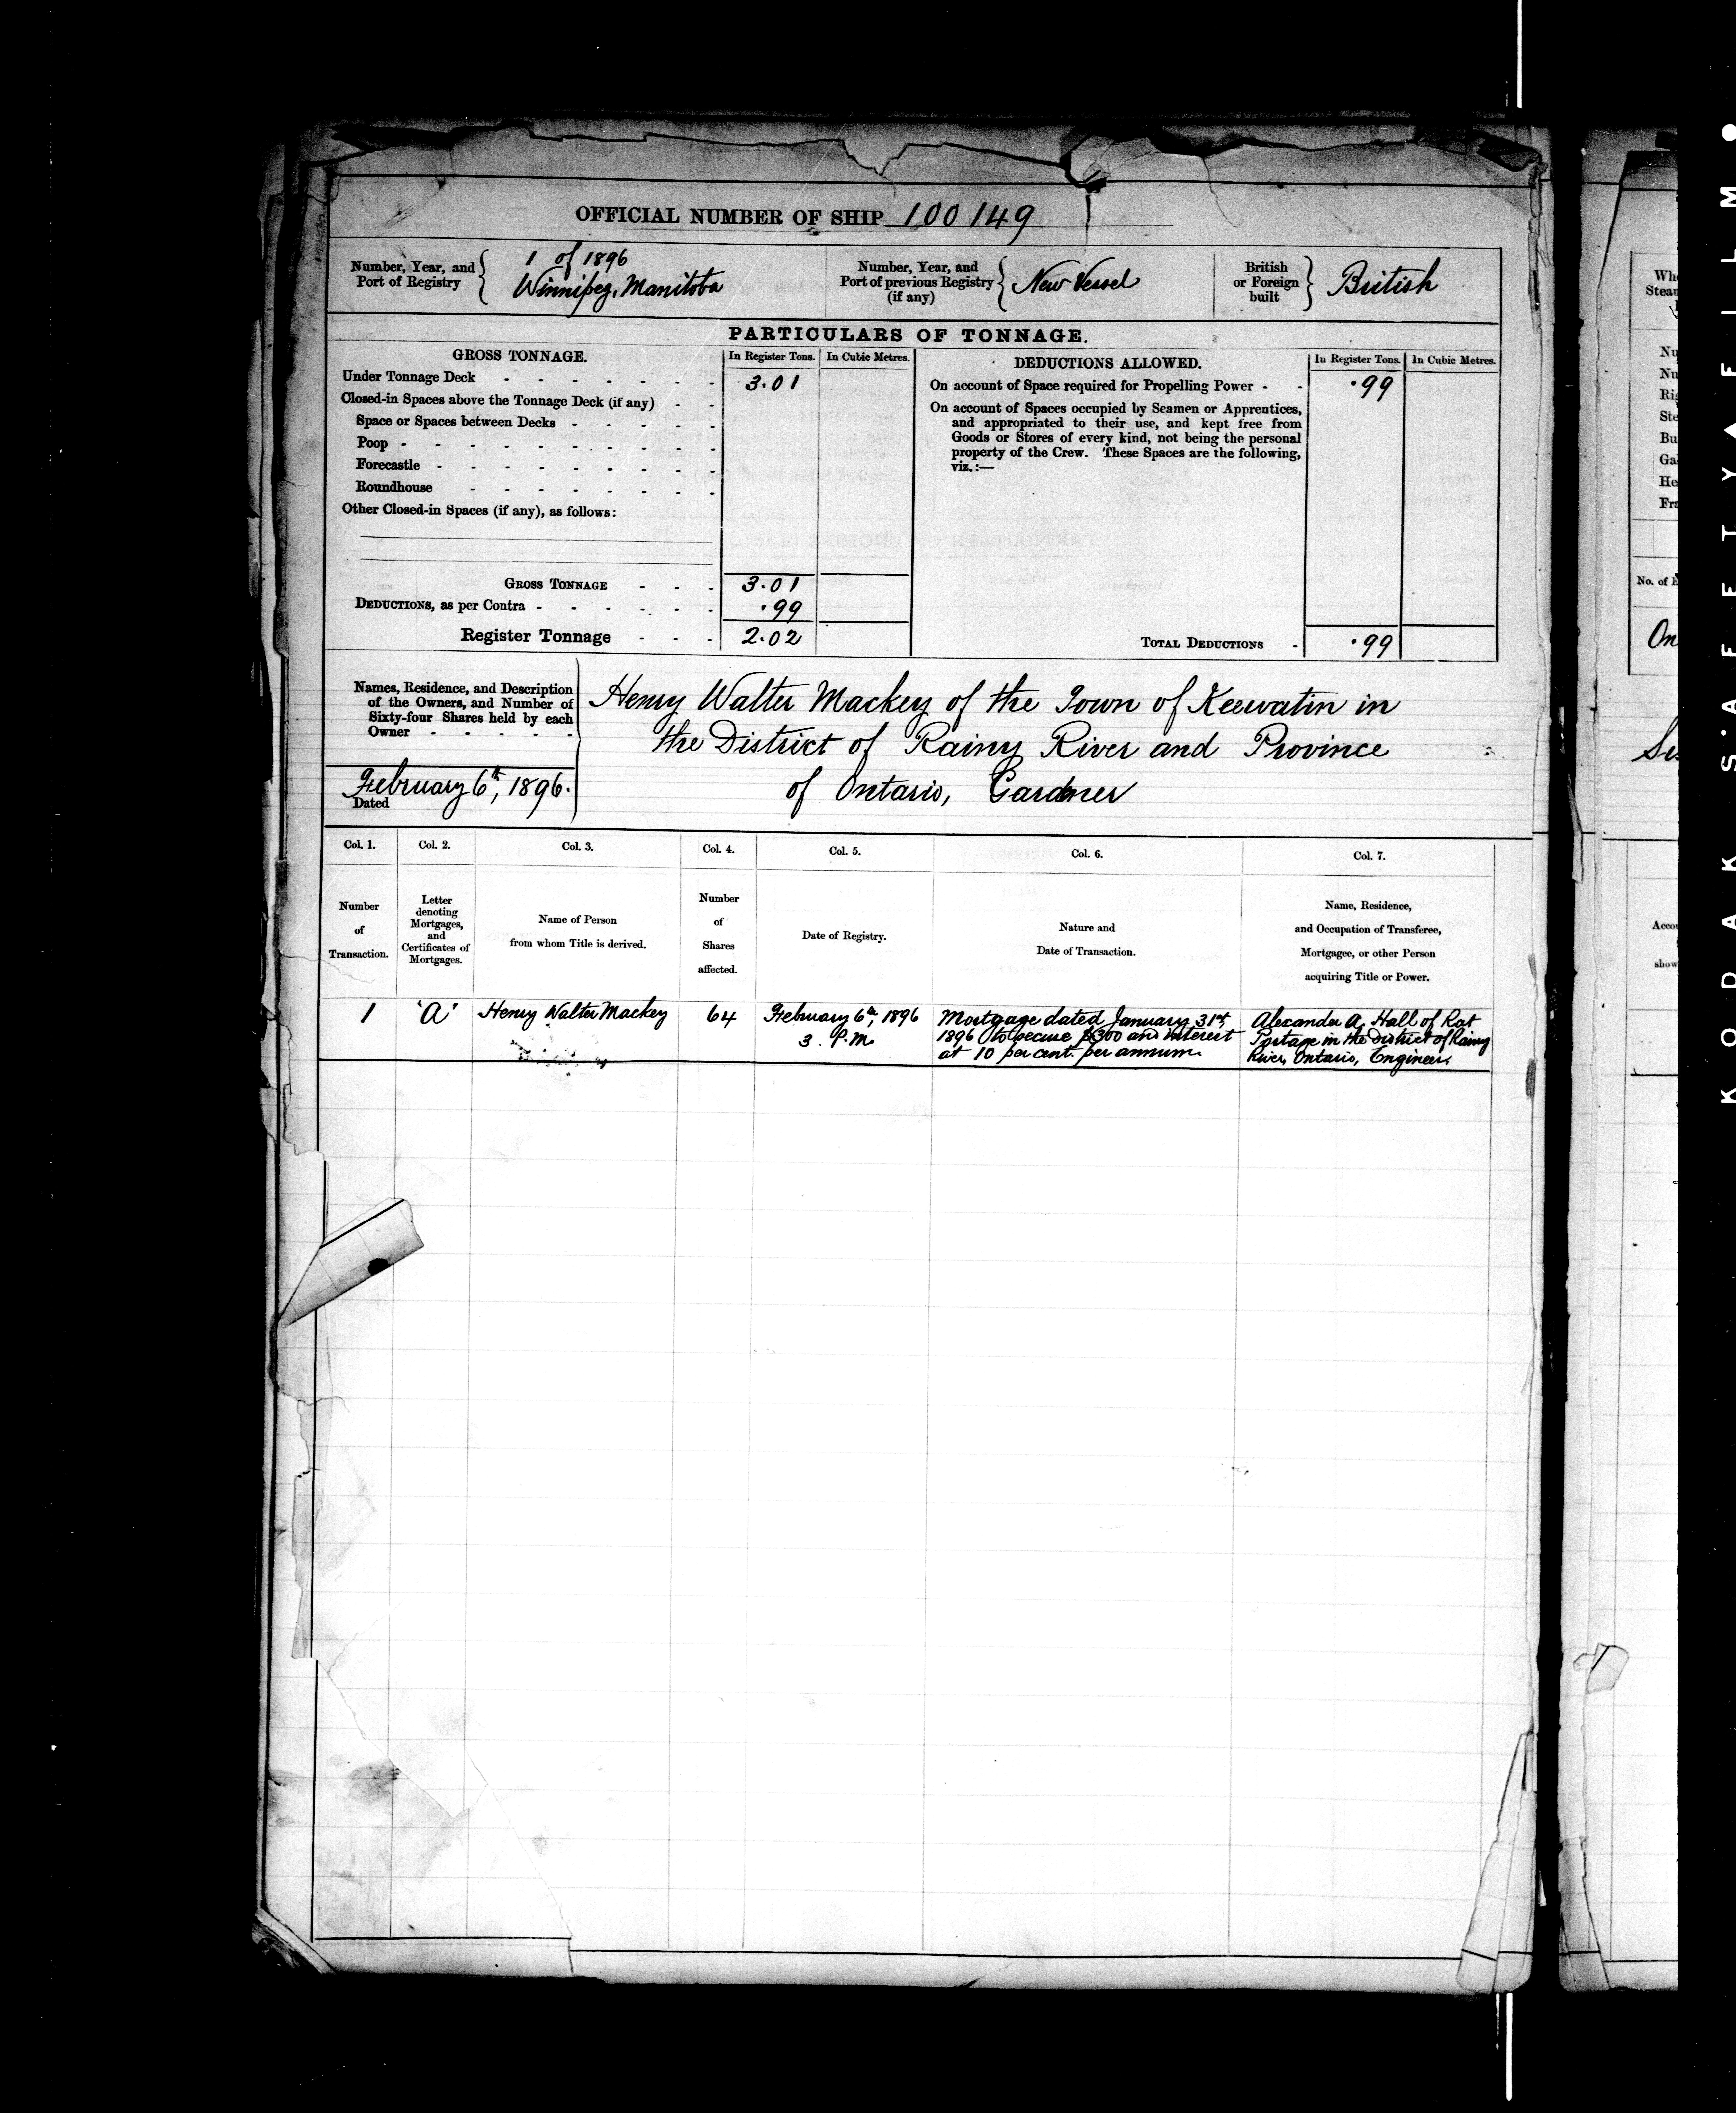 OFFICIAL NUMBER OF SHIP 100149
Number, Year, and
Port of Registry
1 of 1896
Winnipeg, Manitoba
Number, Year, and
Port of previous Registry
(if any)
New Vessel
British
or Foreign
built
British
PARTICULARS OF TONNAGE.
GROSS TONNAGE. In Register Tons. In Cubic Metres.
Under Tonnage Deck - - - - - - - 3.01
Closed-in Spaces above the Tonnage Deck (if any) - -
Space or Spaces between Decks - - - - -
Poop - - - - - - - - -
Forecastle - - - - - - - - -
Roundhouse - - - - - - - -
Other Closed-in Spaces (if any), as follows:
GROSS TONNAGE - - - 3.01
DEDUCTIONS, as per Contra - - - - - - .99
Register Tonnage - - - 2.02
DEDUCTIONS ALLOWED. In Register Tons. In Cubic Metres.
On account of Space required for Propelling Power - - .99
On account of Spaces occupied by Seamen or Apprentices,
and appropriated to their use, and kept free from
Goods or Stores of every kind, not being the personal
property of the Crew. These Spaces are the following,
viz.:—
TOTAL DEDUCTIONS - .99
Names, Residence, and Description
of the Owners, and Number of
Sixty-four Shares held by each
Owner - - - - -
February 6th, 1896.
Dated
Henry Walter Mackey of the Town of Keewatin in
the District of Rainy River and Province
of Ontario, Gardner
Col. 1. Col. 2. Col. 3. Col. 4. Col. 5. Col. 6. Col. 7.
Number
of
Transaction.
Letter
denoting
Mortgages,
and
Certificates of
Mortgages.
Name of Person
from whom Title is derived.
Number
of
Shares
affected.
Date of Registry.
Nature and
Date of Transaction.
Name, Residence,
and Occupation of Transferee,
Mortgagee, or other Person
acquiring Title or Power.
1
"A"
Henry Walter Mackey
64
February 6th, 1896
3 P.M.
Mortgage dated January 31st,
1896 to secure $300 and interest
at 10 per cent. per annum.
Alexander A. Hall of Rat
Portage in the District of Rainy
River, Ontario, Engineer.
No. of E
On
Accou
show
KODAK SAFETY FILM